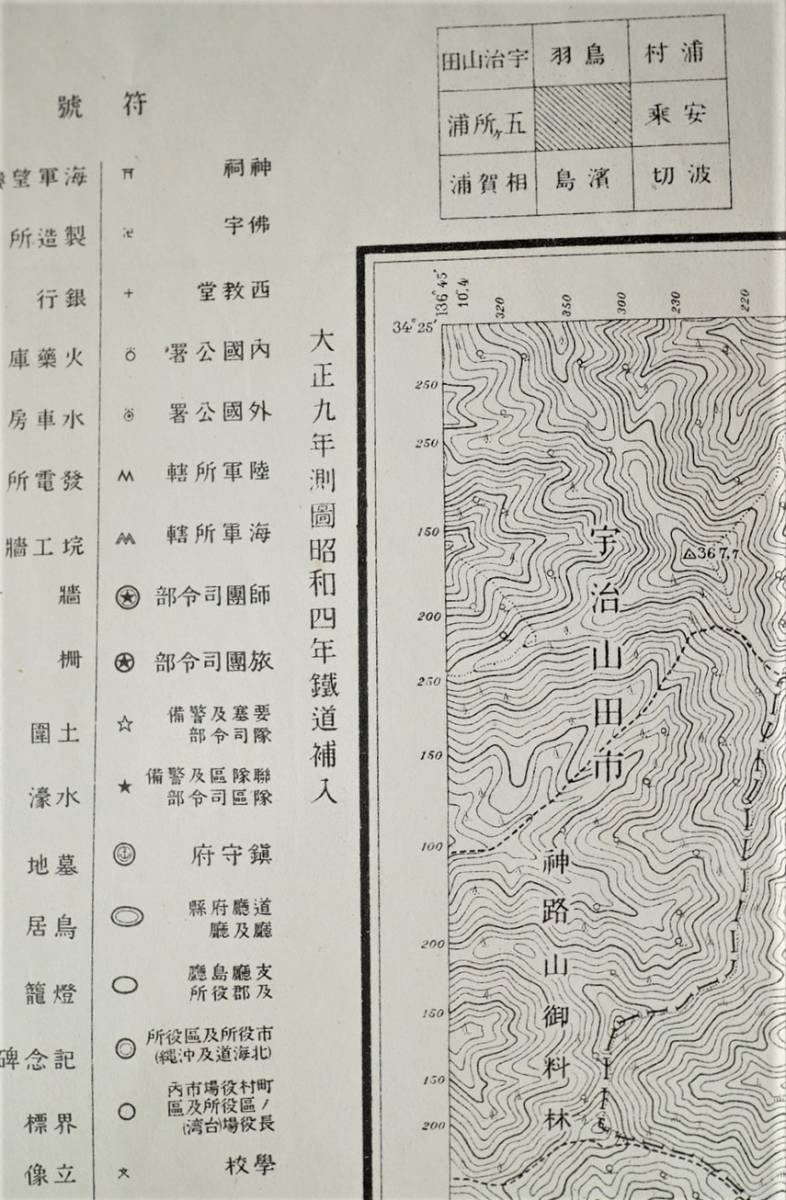 浦村
鳥羽
宇治山田
安乘
五ヶ所浦
波切
濱島
相賀浦
符號
神祠
佛宇
西教堂
內國公署
外國公署
陸軍所轄
海軍所轄
師團司令部
旅團司令部
要塞及警備
隊司令部
聯隊區及警備
隊區司令部
鎭守府
道廳府縣
廳及廳
支廳島廳
及郡役所
市役所及區役所
(北海道及沖繩)
町村役場市內
ノ區役所及區
長役場(台湾)
學校
海軍望
製造所
銀行
火藥庫
水車房
發電所
垸工牆
牆
柵
土圍
水濠
墓地
鳥居
燈籠
記念碑
界標
立像
大正九年測圖昭和四年鐵道補入
136°45′
10″.4
320
350
300
230
220
34°25′
250
250
150
200
250
150
100
200
150
150
200
367,7
宇治山田市
神路山御料林